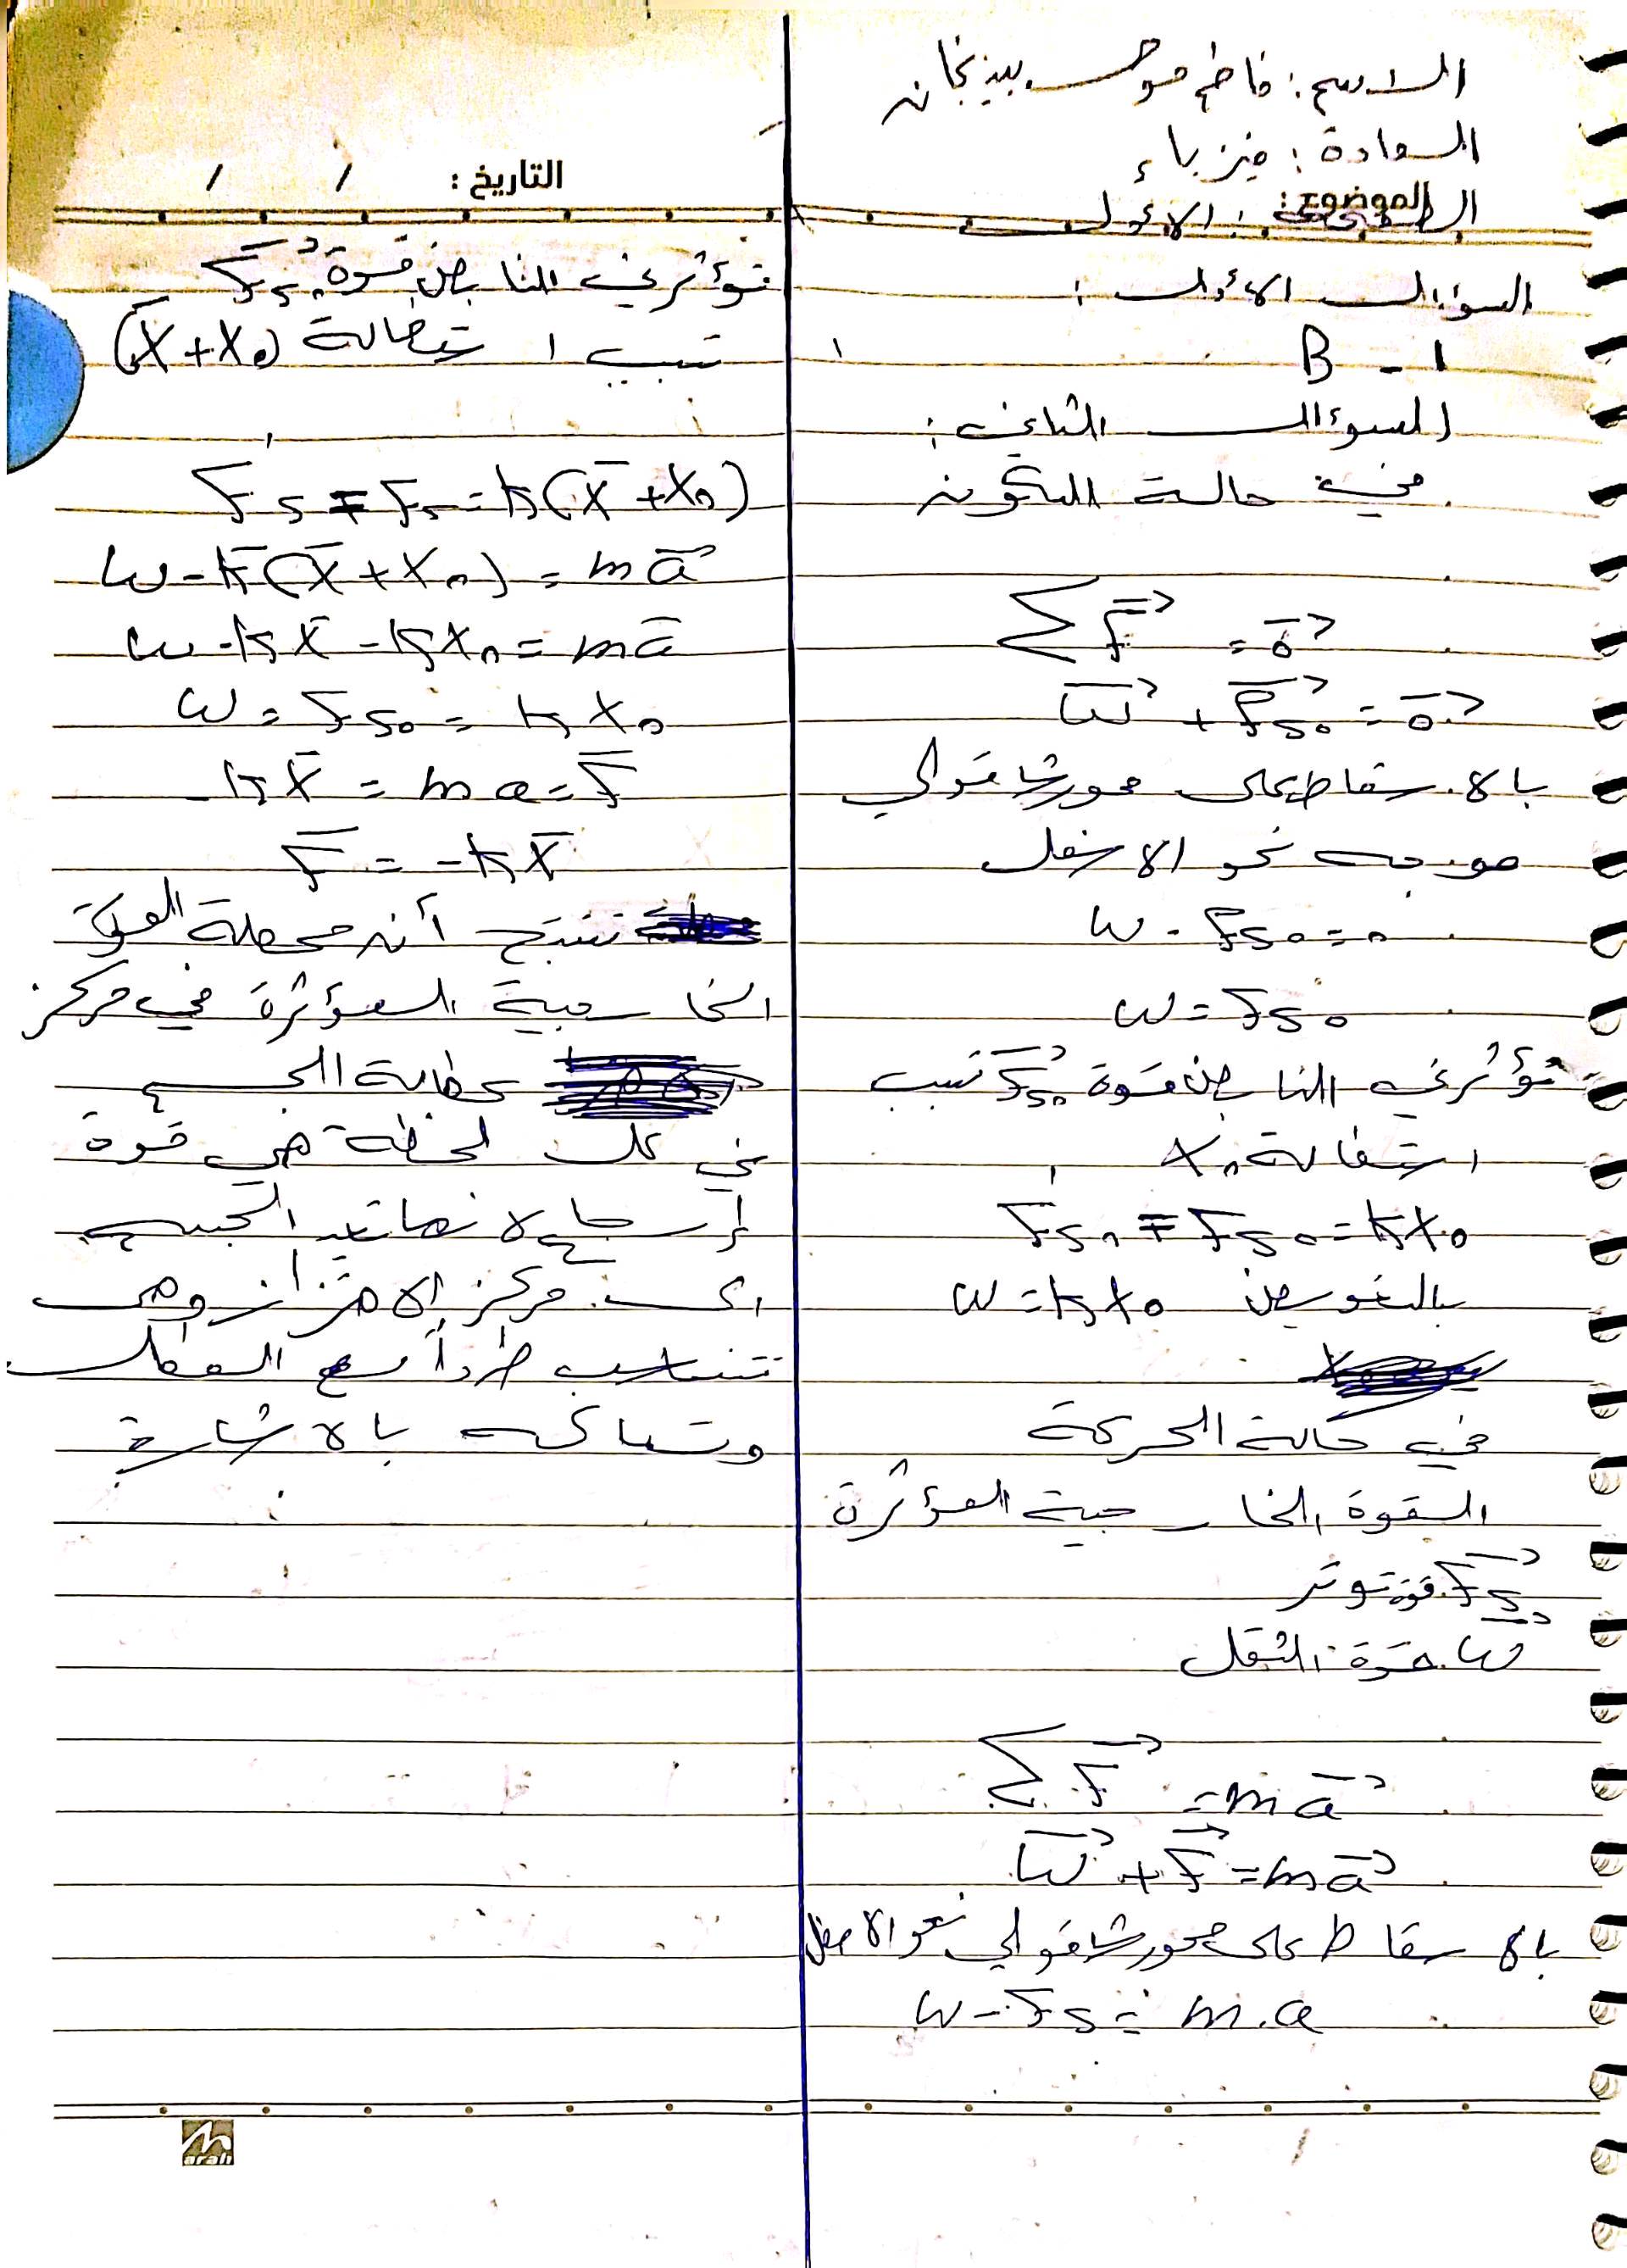 الاسم: فاطمة موسى بيزنجان
المادة: فيزياء
الموضوع:
: الأول
التاريخ: / /
السؤال الأول:
1 - B
السؤال الثاني:
في حالة السكون
∑F⃗ = 0⃗
W⃗ + F⃗s₀ = 0⃗
بالاسقاط على محور شاقولي
موجه نحو الاسفل
W - Fs₀ = 0
W = Fs₀
تؤثر في النابض قوة F⃗s₀ تسبب
استطالة x₀
F's₀ = Fs₀ = kx₀
بالتعويض W = kx₀
في حالة الحركة
القوة الخارجية المؤثرة
F⃗s قوة توتر
W⃗ قوة الثقل
∑F⃗ = ma⃗
W⃗ + F⃗ = ma⃗
بالاسقاط على محور شاقولي نحو الاسفل
W - Fs = m.a
تؤثر في النابض قوة F⃗s
تسبب استطالة (x̄+x₀)
F's = Fs = k(x̄+x₀)
W - k(x̄+x₀) = ma⃗
W - kx̄ - kx₀ = mā
W = Fs₀ = kx₀
-kx̄ = ma = F̄
F̄ = -kx̄
نستنتج أن محصلة القوى
الخارجية المؤثرة في مركز
عطالة الجسم
في كل لحظة هي قوة
إرجاع لانها تعيد الجسم
الى مركز الاهتزاز وهي
تتناسب طرداً مع المطال
وتعاكسه بالاشارة
arah